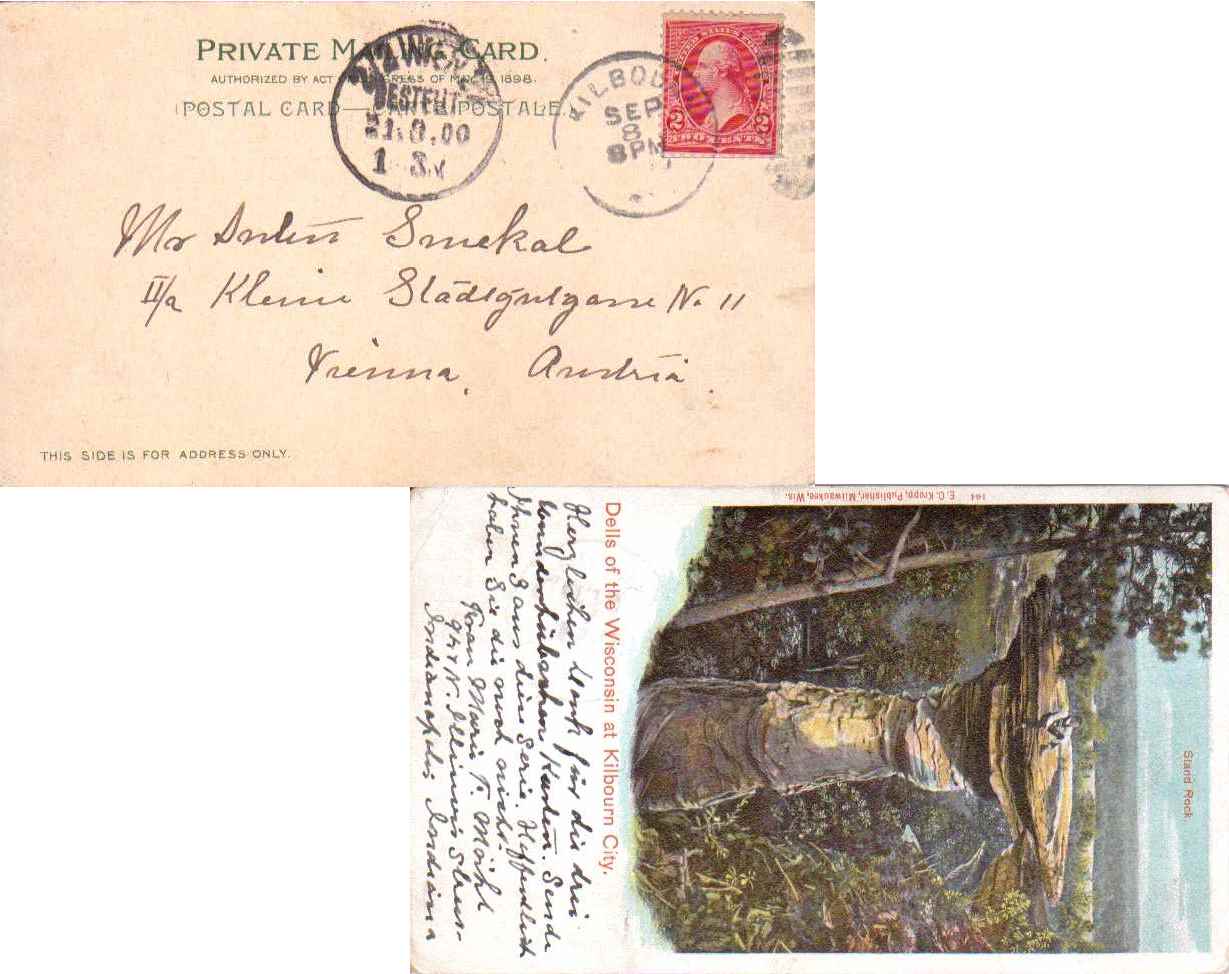 PRIVATE MAILING CARD.
AUTHORIZED BY ACT CONGRESS OF MAY 19, 1898.
(POSTAL CARD—CARTE POSTALE.)
BESTELLT
1.9.00
KILBOU
SEP
8
8 PM
2 2
TWO CENTS
Mr Anton Smekal
II/a Kleine Stadtgutgasse No. 11
Vienna, Austria.
THIS SIDE IS FOR ADDRESS ONLY.
Dells of the Wisconsin at Kilbourn City.
Herzlichen Dank für die drei
wunderhübschen Karten. Sende
Ihnen 3 aus diese Serie. Hoffendlich
haben Sie die noch nicht.
Frau Marie T. Möhl
N. Illinois Street
Indianapolis, Indiana
164 E. C. Kropp, Publisher, Milwaukee, Wis.
Stand Rock